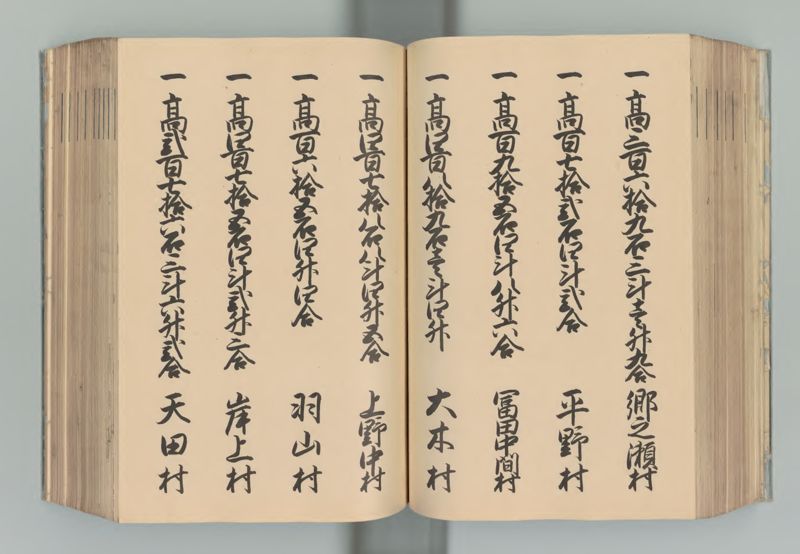 一高三百六拾九石三斗壱升九合 郷之瀬村
一高百七拾弐石四斗弐合 平野村
一高百九拾五石四斗八升六合 冨田中間村
一高四百八拾九石壱斗四升 大木村
一高四百七拾八石八斗四升五合 上野中村
一高百六拾五石四升四合 羽山村
一高四百七拾五石四斗弐升三合 岸上村
一高弐百七拾六石三斗六升弐合 天田村